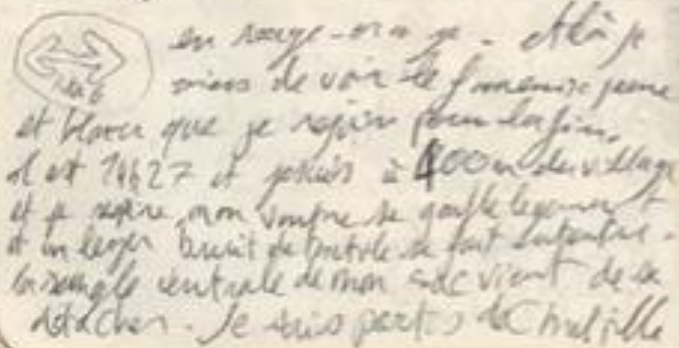 en rouge-orange. Et là je
viens de voir le fameux jaune
et blanc que je rejoins pour la fin.
il est 14h27 et je suis à 400m du village
et je respire, mon ventre se gonfle légèrement
et un léger bruit de se fait entendre.
la sangle ventrale de mon sac vient de se
détacher. Je suis partis de